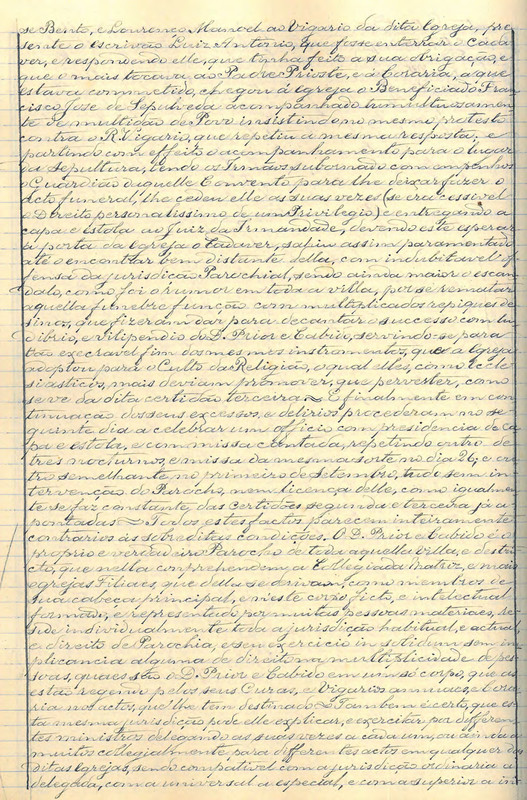 se Bento, e Lourenço Manoel ao Vigario da dita Igreja, pre
sente o escrivão Luiz Antonio, que fosse enterrar o cada
ver, e respondendo elle, que tinha feito a sua obrigação, e
que o mais tocava ao Padre Prioste, e á Coraria, a que
estava commettido, chegou á Igreja o Beneficiado Fran
cisco José de Sepulveda acompanhado tumultuosamente
de multidão de Povo insistindo no mesmo protesto
contra o R. Vigario, que repetiu a mesma resposta, e
partindo com effeito o acompanhamento para o lugar
da sepultura, tendo os Irmãos subornado com empenhos
o Guardião daquelle Convento para lhe deixar fazer o
acto funeral, lhe cedeu elle as suas vezes (se era cessivel
o Direito personalissimo de um Privilegio) e entregando a
capa e estola ao Juiz da Irmandade, devendo este esperar
á porta da Igreja o cadaver, sahiu assim paramentado
até o encontrar bem distante della, com indubitavel of
fensa da jurisdicção Parochial, sendo ainda maior o escan
dalo, como foi o rumor em toda a villa, por se rematar
aquella funebre funcção com multiplicados repiques de
sinos, que fizeram dar para decantar o successo com lu
dibrio, e vilipendio do D. Prior e Cabido, servindo-se para
tão execravel fim dos mesmos instrumentos, que a Igreja
adoptou para o Culto da Religião, o qual elles, como Eccle
siasticos, mais deviam promover, que perverter, como
se vê da dita certidão terceira ~ E finalmente em con
tinuação dos seus excessos, e delirios procederam no se
guinte dia a celebrar um officio com presidencia de ca
pa e estola, e com missa cantada, repetindo outro de
tres nocturnos, e missa da mesma sorte no dia 26, e ou
tro semelhante no primeiro de setembro, tudo sem in
tervenção do Parocho, nem licença delle, como igualmen
te se faz constante das certidões segunda e terceira já a
pontadas ~ Todos estes factos parecem inteiramente
contrarios ás sobreditas condições. O D. Prior e Cabido é o
proprio e verdadeiro Parocho de toda aquella villa, e destri
cto, que nella comprehendem, a Collegiada Matriz, e mais
Igrejas Filiaes, que della se derivam, como membros da
sua cabeça principal, e neste corpo ficto, e intellectual
formado, e representado por muitas pessoas materiaes, re
side individualmente toda a jurisdicção habitual, e actual
e direito de Parochia, e seu exercicio in solidum, sem im
plicancia alguma de direito na multiplicidade de pes
soas, quaes são o D. Prior e Cabido em um só corpo, que as
estão regendo pelos seus Curas, e Vigarios annuaes, e Cora
ria nos actos, que lhe tem destinado ~ Tambem é certo, que es
ta mesma jurisdicção pode elle explicar, e exercitar por differen
tes ministros delegando as suas vezes a cada um, ou ainda a
muitos collegialmente, para differentes actos em qualquer das
ditas Igrejas, sendo compativel com a jurisdicção ordinaria a
delegada, com a universal a especial, e com a superior a in